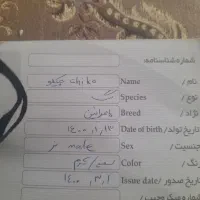 شماره شناسنامه
نام / Name چیکو chiko
نوع / Species سگ
نژاد / Breed
تاریخ تولد / Date of birth ۱۴۰۰,۱,۱۳
جنسیت / Sex male نر
رنگ / Color سفید/کرم
تاریخ صدور / Issue date ۱۴۰۰,۳,۱